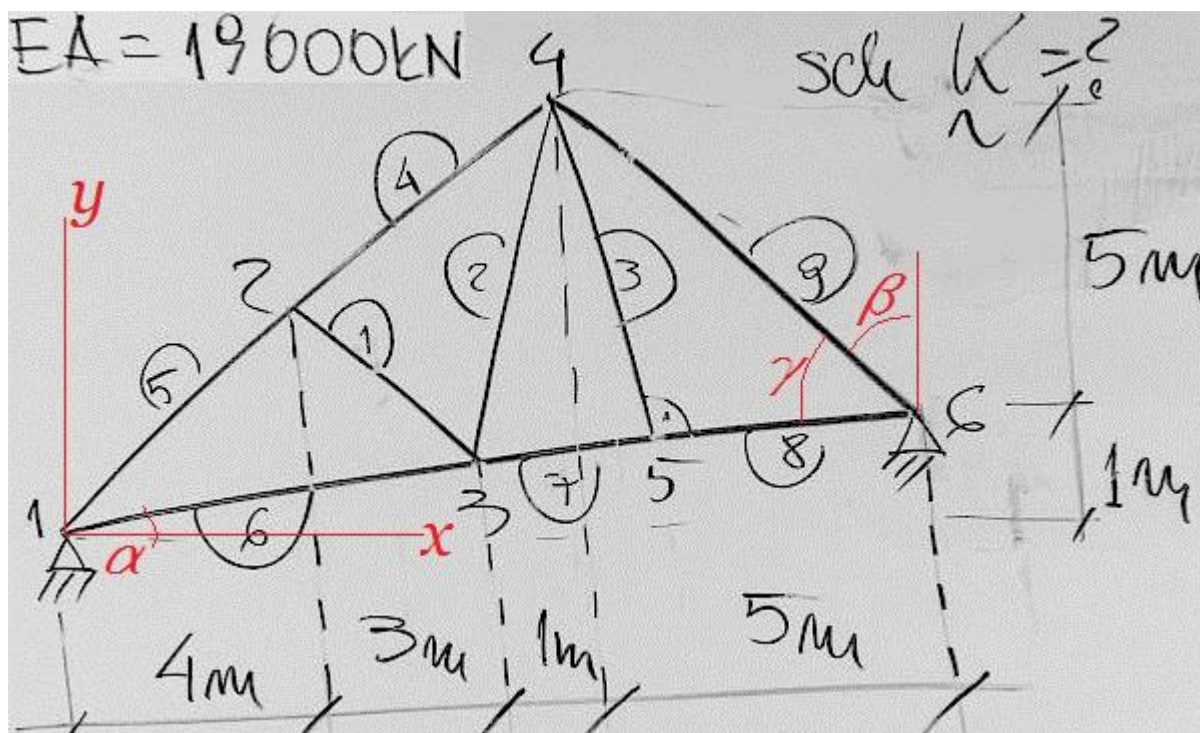 EA = 19000kN
4
sch K = ?
y
4
5m
2
2
3
9
β
1
γ
5
6
1
3
7
5
8
1m
α
6
x
4m
3m
1m
5m